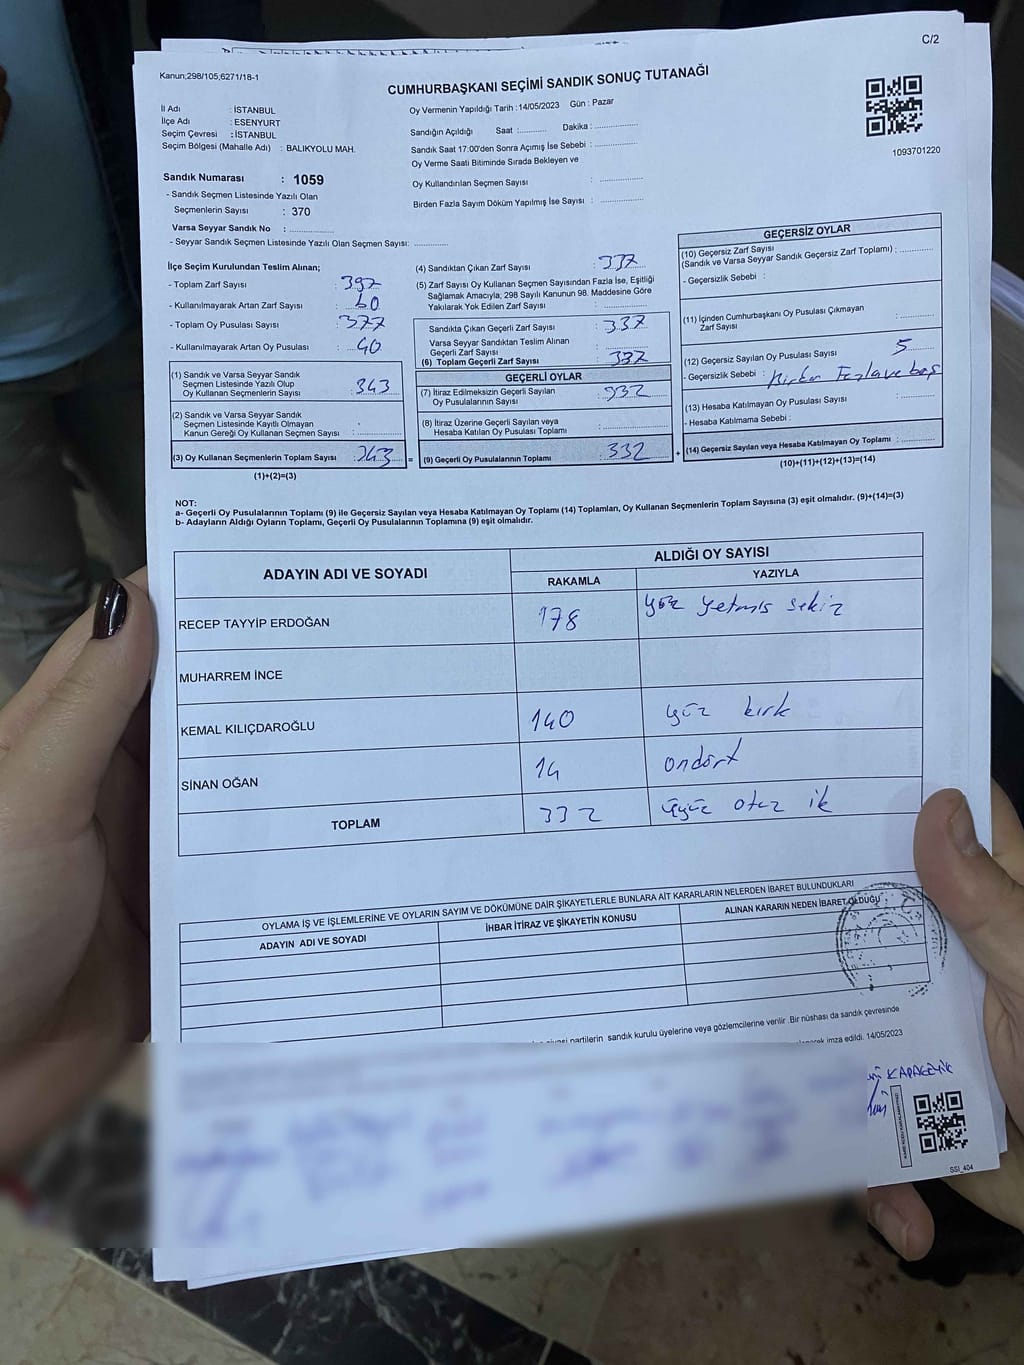 C/2
Kanun;298/105;6271/18-1
CUMHURBAŞKANI SEÇİMİ SANDIK SONUÇ TUTANAĞI
İl Adı : İSTANBUL
İlçe Adı : ESENYURT
Seçim Çevresi : İSTANBUL
Seçim Bölgesi (Mahalle Adı) : BALIKYOLU MAH.
Oy Vermenin Yapıldığı Tarih :14/05/2023 Gün : Pazar
Sandığın Açıldığı Saat :.......... Dakika : ................
Sandık Saat 17:00'den Sonra Açımış İse Sebebi : ...............
Oy Verme Saati Bitiminde Sırada Bekleyen ve
Oy Kullandırılan Seçmen Sayısı : ................
Birden Fazla Sayım Döküm Yapılmış İse Sayısı : ................
1093701220
Sandık Numarası : 1059
- Sandık Seçmen Listesinde Yazılı Olan
Seçmenlerin Sayısı : 370
Varsa Seyyar Sandık No : ................
- Seyyar Sandık Seçmen Listesinde Yazılı Olan Seçmen Sayısı: ............
İlçe Seçim Kurulundan Teslim Alınan;
- Toplam Zarf Sayısı :
- Kullanılmayarak Artan Zarf Sayısı :
- Toplam Oy Pusulası Sayısı : 377
- Kullanılmayarak Artan Oy Pusulası : 40
(1) Sandık ve Varsa Seyyar Sandık
Seçmen Listesinde Yazılı Olup
Oy Kullanan Seçmenlerin Sayısı : 343
(2) Sandık ve Varsa Seyyar Sandık
Seçmen Listesinde Kayıtlı Olmayan
Kanun Gereği Oy Kullanan Seçmen Sayısı : ............
(3) Oy Kullanan Seçmenlerin Toplam Sayısı :
(1)+(2)=(3)
(4) Sandıktan Çıkan Zarf Sayısı : 337
(5) Zarf Sayısı Oy Kullanan Seçmen Sayısından Fazla İse, Eşitliği
Sağlamak Amacıyla; 298 Sayılı Kanunun 98. Maddesine Göre
Yakılarak Yok Edilen Zarf Sayısı : ............
Sandıkta Çıkan Geçerli Zarf Sayısı : 337
Varsa Seyyar Sandıktan Teslim Alınan
Geçerli Zarf Sayısı :
(6) Toplam Geçerli Zarf Sayısı : 337
GEÇERLİ OYLAR
(7) İtiraz Edilmeksizin Geçerli Sayılan
Oy Pusulalarının Sayısı : 332
(8) İtiraz Üzerine Geçerli Sayılan veya
Hesaba Katılan Oy Pusulası Toplamı : ............
(9) Geçerli Oy Pusulalarının Toplamı : 332
GEÇERSİZ OYLAR
(10) Geçersiz Zarf Sayısı
(Sandık ve Varsa Seyyar Sandık Geçersiz Zarf Toplamı) : ............
- Geçersizlik Sebebi :
(11) İçinden Cumhurbaşkanı Oy Pusulası Çıkmayan
Zarf Sayısı : ............
(12) Geçersiz Sayılan Oy Pusulası Sayısı : 5
- Geçersizlik Sebebi : Birden Fazla ve boş
(13) Hesaba Katılmayan Oy Pusulası Sayısı : ............
- Hesaba Katılmama Sebebi :
(14) Geçersiz Sayılan veya Hesaba Katılmayan Oy Toplamı : ............
(10)+(11)+(12)+(13)=(14)
NOT:
a- Geçerli Oy Pusulalarının Toplamı (9) ile Geçersiz Sayılan veya Hesaba Katılmayan Oy Toplamı (14) Toplamları, Oy Kullanan Seçmenlerin Toplam Sayısına (3) eşit olmalıdır. (9)+(14)=(3)
b- Adayların Aldığı Oyların Toplamı, Geçerli Oy Pusulalarının Toplamına (9) eşit olmalıdır.
ADAYIN ADI VE SOYADI ALDIĞI OY SAYISI
RAKAMLA YAZIYLA
RECEP TAYYİP ERDOĞAN 178 yüz yetmiş sekiz
MUHARREM İNCE
KEMAL KILIÇDAROĞLU 140 yüz kırk
SİNAN OĞAN 14 ondört
TOPLAM 332 üçyüz otuz ik
OYLAMA İŞ VE İŞLEMLERİNE VE OYLARIN SAYIM VE DÖKÜMÜNE DAİR ŞİKAYETLERLE BUNLARA AİT KARARLARIN NELERDEN İBARET BULUNDUKLARI
ADAYIN ADI VE SOYADI İHBAR İTİRAZ VE ŞİKAYETİN KONUSU ALINAN KARARIN NEDEN İBARET OLDUĞU
partilerin sandık kurulu üyelerine veya gözlemcilerine verilir .Bir nüshası da sandık çevresinde
imza edildi. 14/05/2023
SSI_404